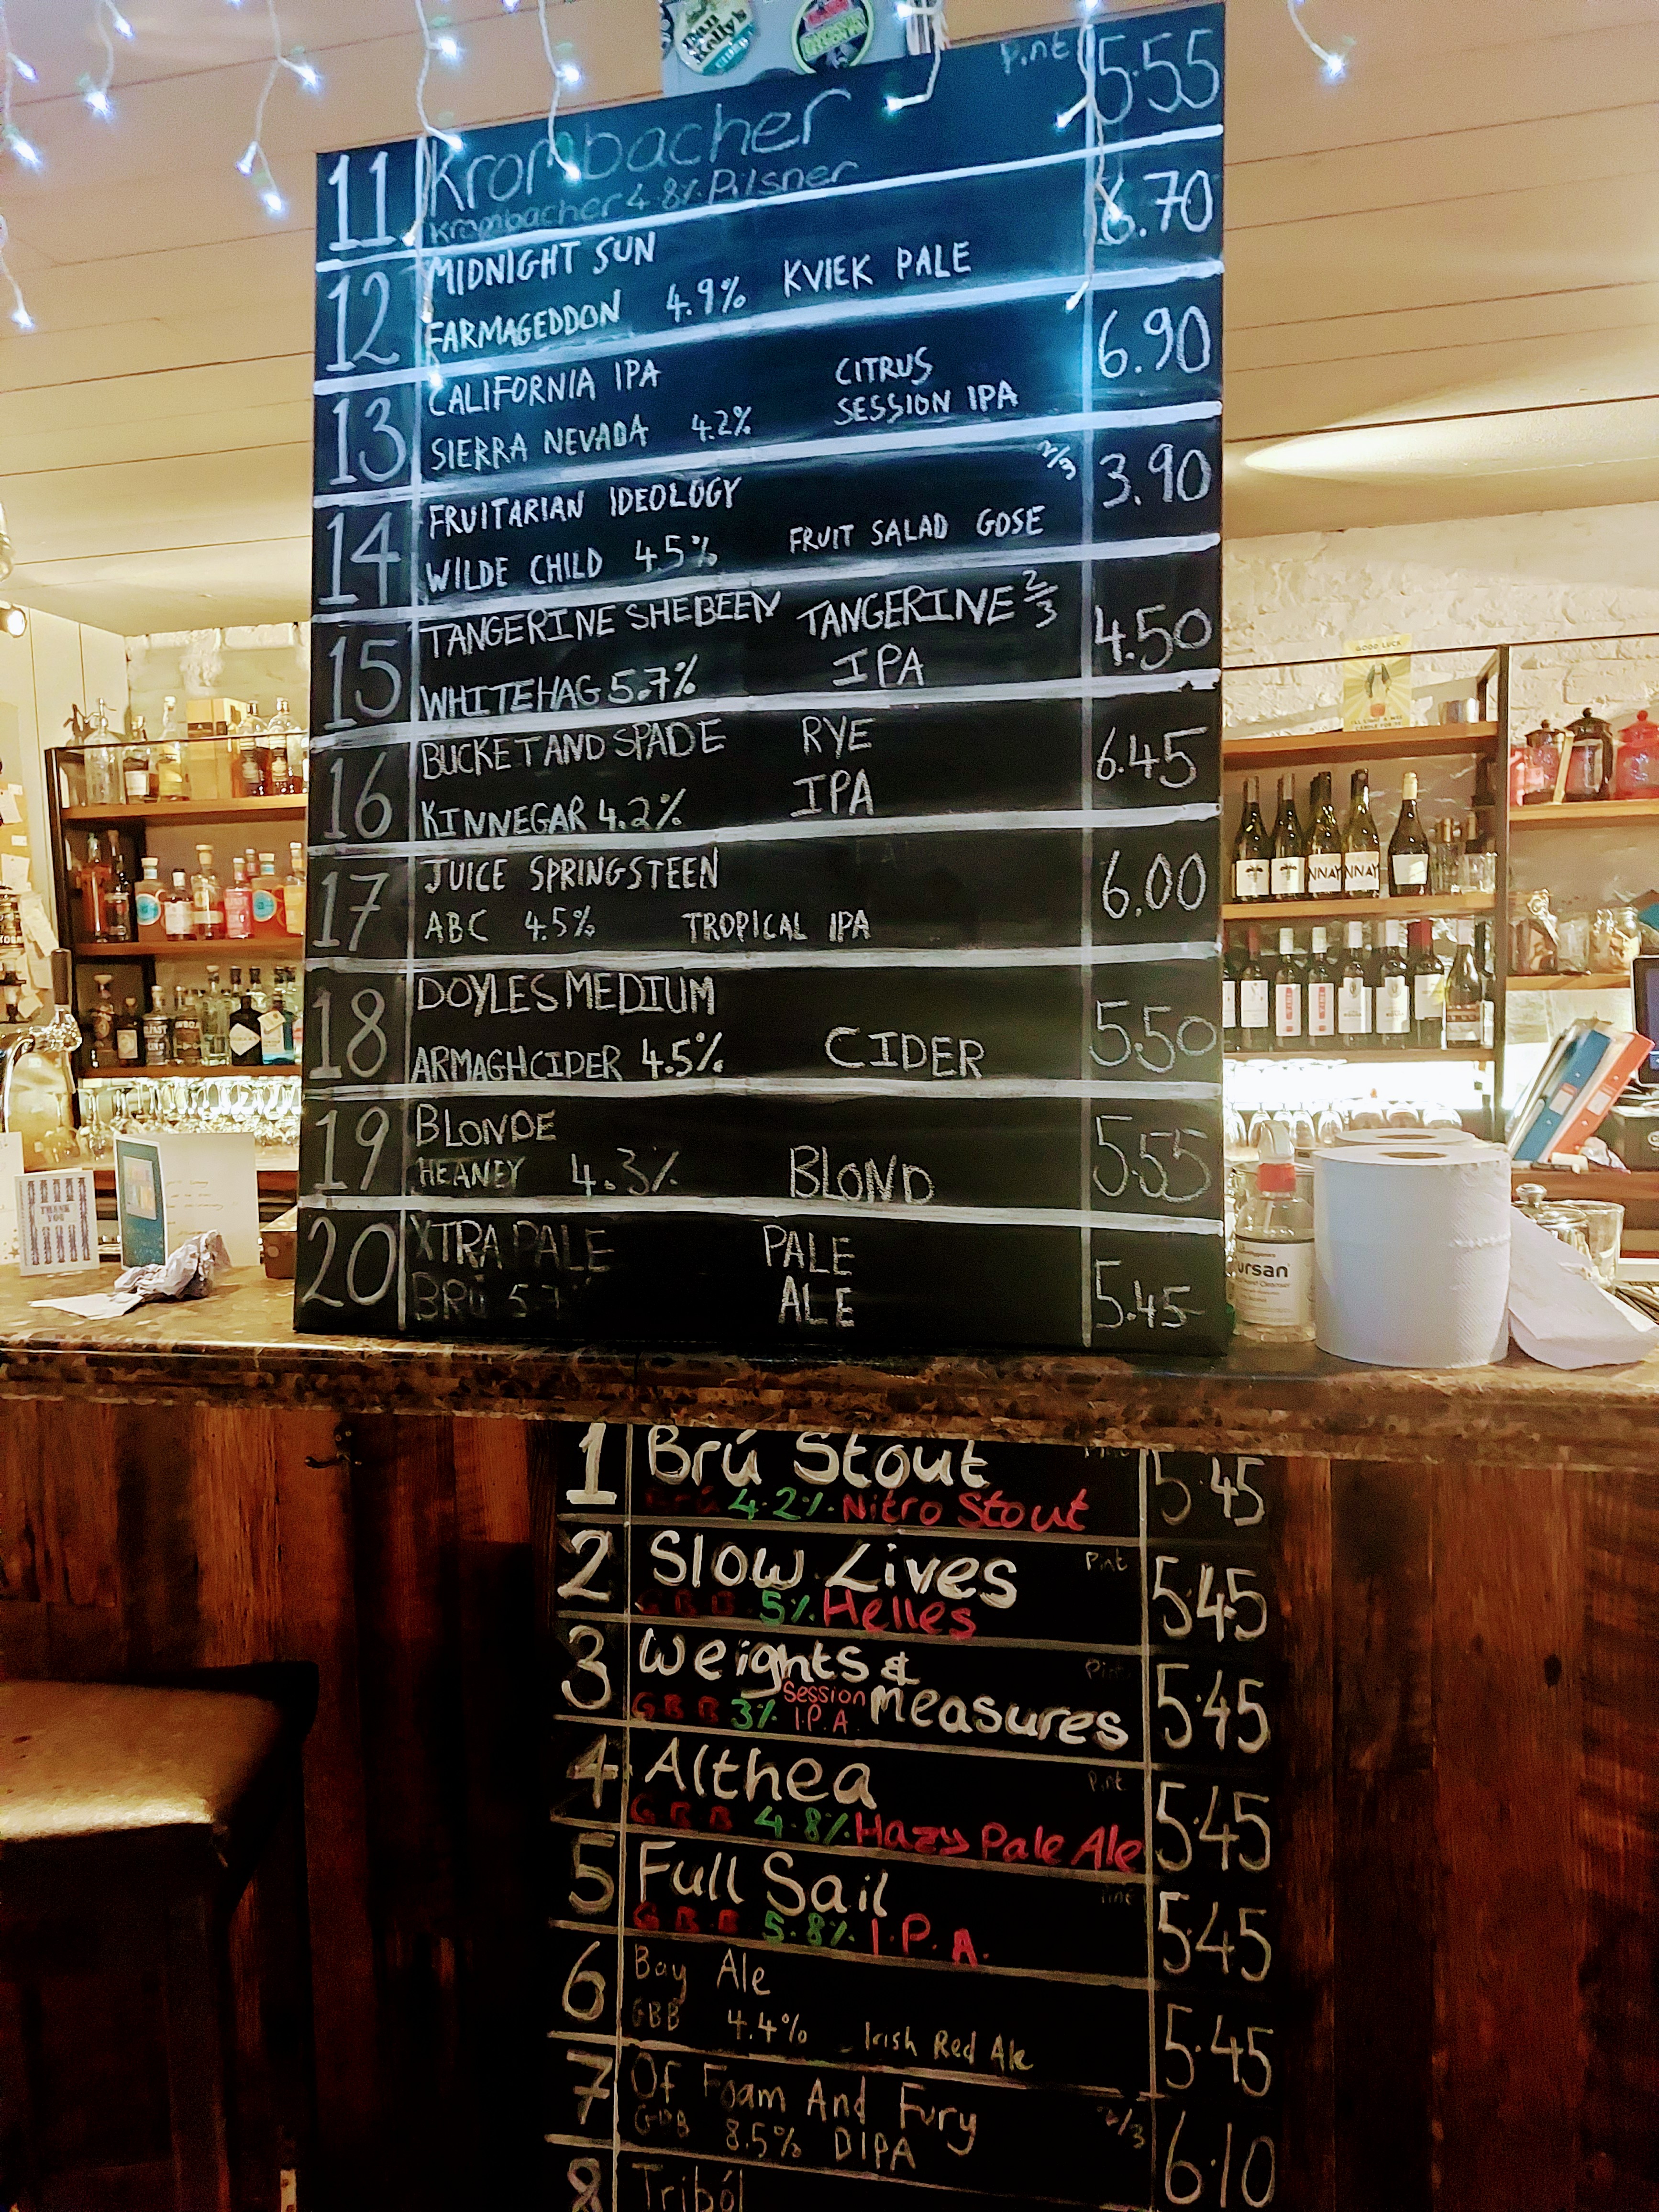 Dan Kelly's
CIDER
Pint 5.55
11 Krombacher
Krombacher 4.8% Pilsner
12 MIDNIGHT SUN 6.70
FARMAGEDDON 4.9% KVIEK PALE
13 CALIFORNIA IPA CITRUS 6.90
SIERRA NEVADA 4.2% SESSION IPA
14 FRUITARIAN IDEOLOGY 2/3 3.90
WILDE CHILD 4.5% FRUIT SALAD GOSE
15 TANGERINE SHEBEEN TANGERINE 2/3 4.50
WHITEHAG 5.7% IPA
16 BUCKET AND SPADE RYE 6.45
KINNEGAR 4.2% IPA
17 JUICE SPRINGSTEEN 6.00
ABC 4.5% TROPICAL IPA
18 DOYLES MEDIUM 5.50
ARMAGH CIDER 4.5% CIDER
19 BLONDE 5.55
HEANEY 4.3% BLOND
20 XTRA PALE PALE 5.45
BRÚ 5.7 ALE
GOOD LUCK
NNAY NNAY
THANK
YOU
ursan
1 Brú Stout 5.45
Brú 4.2% Nitro Stout
2 Slow Lives Pint 5.45
GBB 5% Helles
3 Weights & Pint 5.45
Measures
GBB 3% Session I.P.A
4 Althea Pint 5.45
GBB 4.8% Hazy Pale Ale
5 Full Sail Pint 5.45
GBB 5.8% I.P.A.
6 Bay Ale 5.45
GBB 4.4% Irish Red Ale
7 Of Foam And Fury 2/3 6.10
GBB 8.5% DIPA
8 Triból